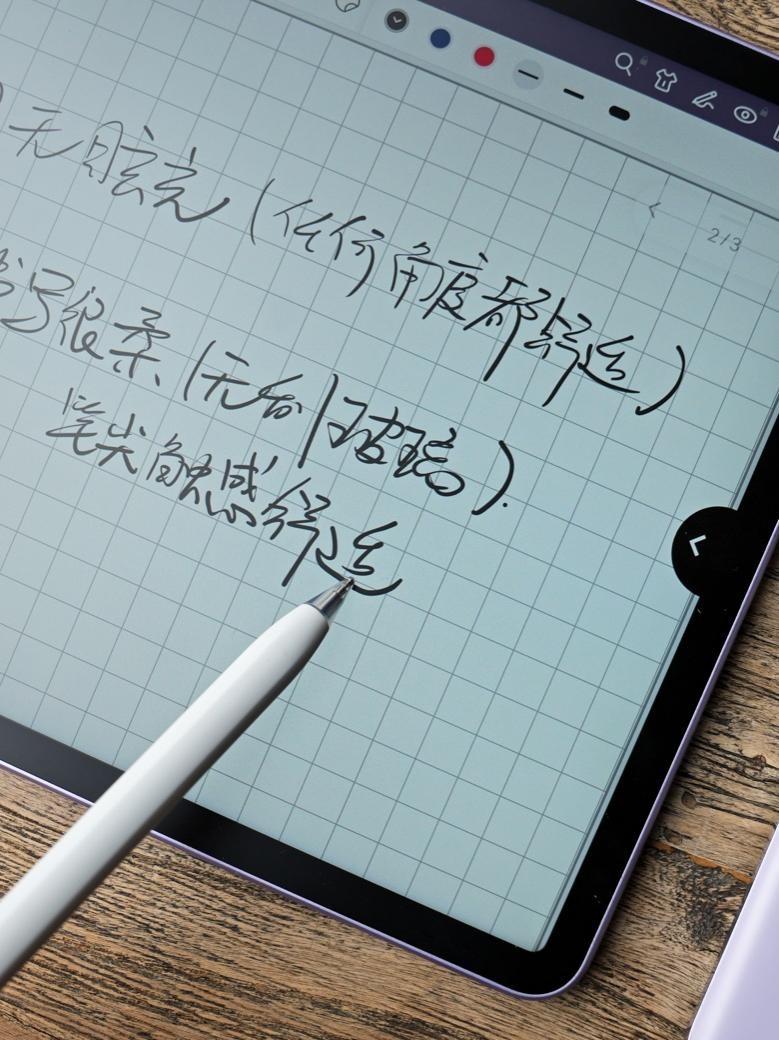 2/3
无目眩光(任何角度都舒适)
书写很柔(无刮玻璃).
笔尖触感舒适